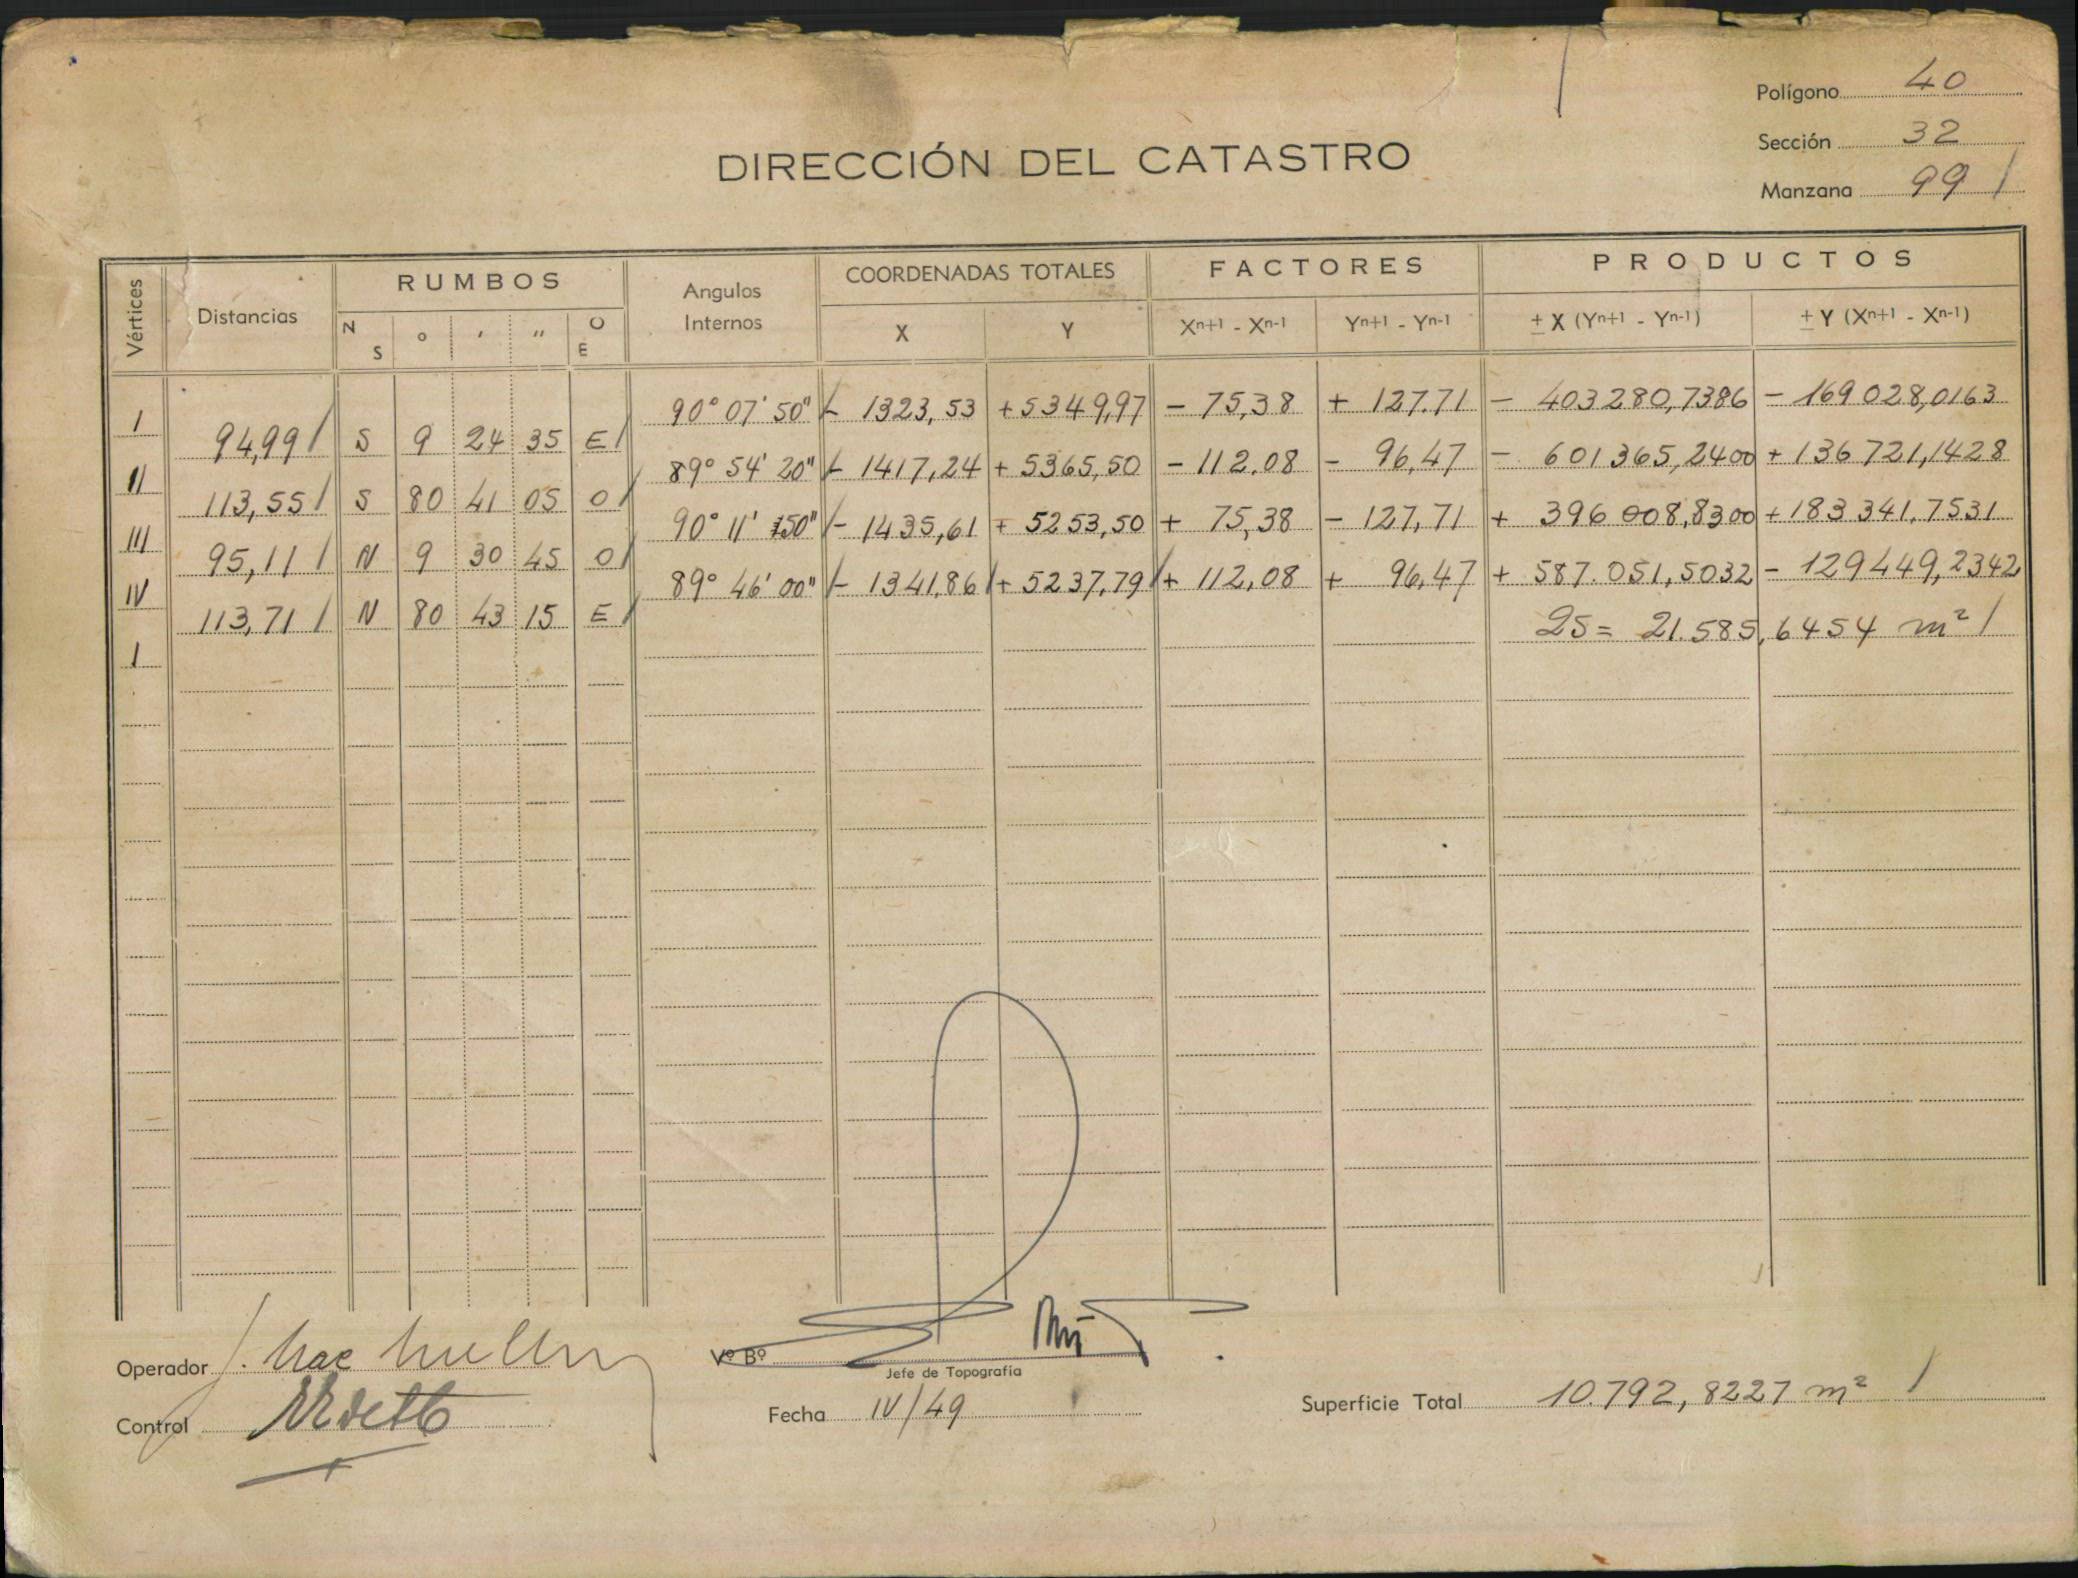 Polígono 40
Sección 32
Manzana 99 /
DIRECCIÓN DEL CATASTRO
Vértices Distancias RUMBOS Angulos Internos COORDENADAS TOTALES FACTORES PRODUCTOS
N S ° ′ ″ O E X Y Xn+1 - Xn-1 Yn+1 - Yn-1 ± X (Yn+1 - Yn-1) ± Y (Xn+1 - Xn-1)
I 90° 07' 50" - 1323,53 + 5349,97 - 75,38 + 127.71 - 403280,7386 - 169028,0163
94,99 / S 9 24 35 E /
II 89° 54' 20" - 1417,24 + 5365,50 - 112.08 - 96,47 - 601365,2400 + 136721,1428
113,55 / S 80 41 05 O /
III 90° 11' 50" - 1435,61 + 5253,50 + 75,38 - 127,71 + 396008,8300 + 183341,7531
95,11 / N 9 30 45 O /
IV 89° 46' 00" - 1341,86 / + 5237,79 / + 112,08 + 96,47 + 587.051,5032 - 129449,2342
113,71 / N 80 43 15 E /
2S = 21.585,6454 m² /
I
Operador J. Mac
Vº Bº
Jefe de Topografía
Control
Fecha IV/49
Superficie Total 10.792,8227 m² /